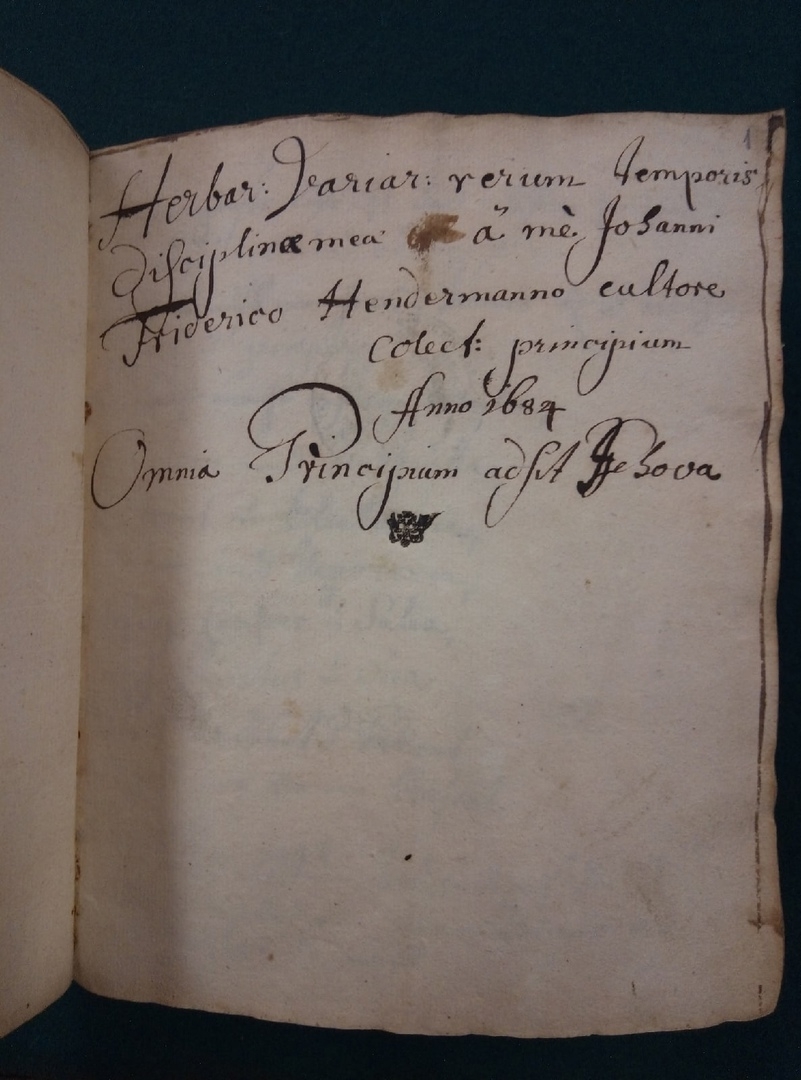 1
Herbar: Variar: rerum temporis
disciplinæ meæ à mè Johanni
Friderico Hendermanno cultore
Colect: principium
Anno 1684
Omnia Principium adsit Jehova